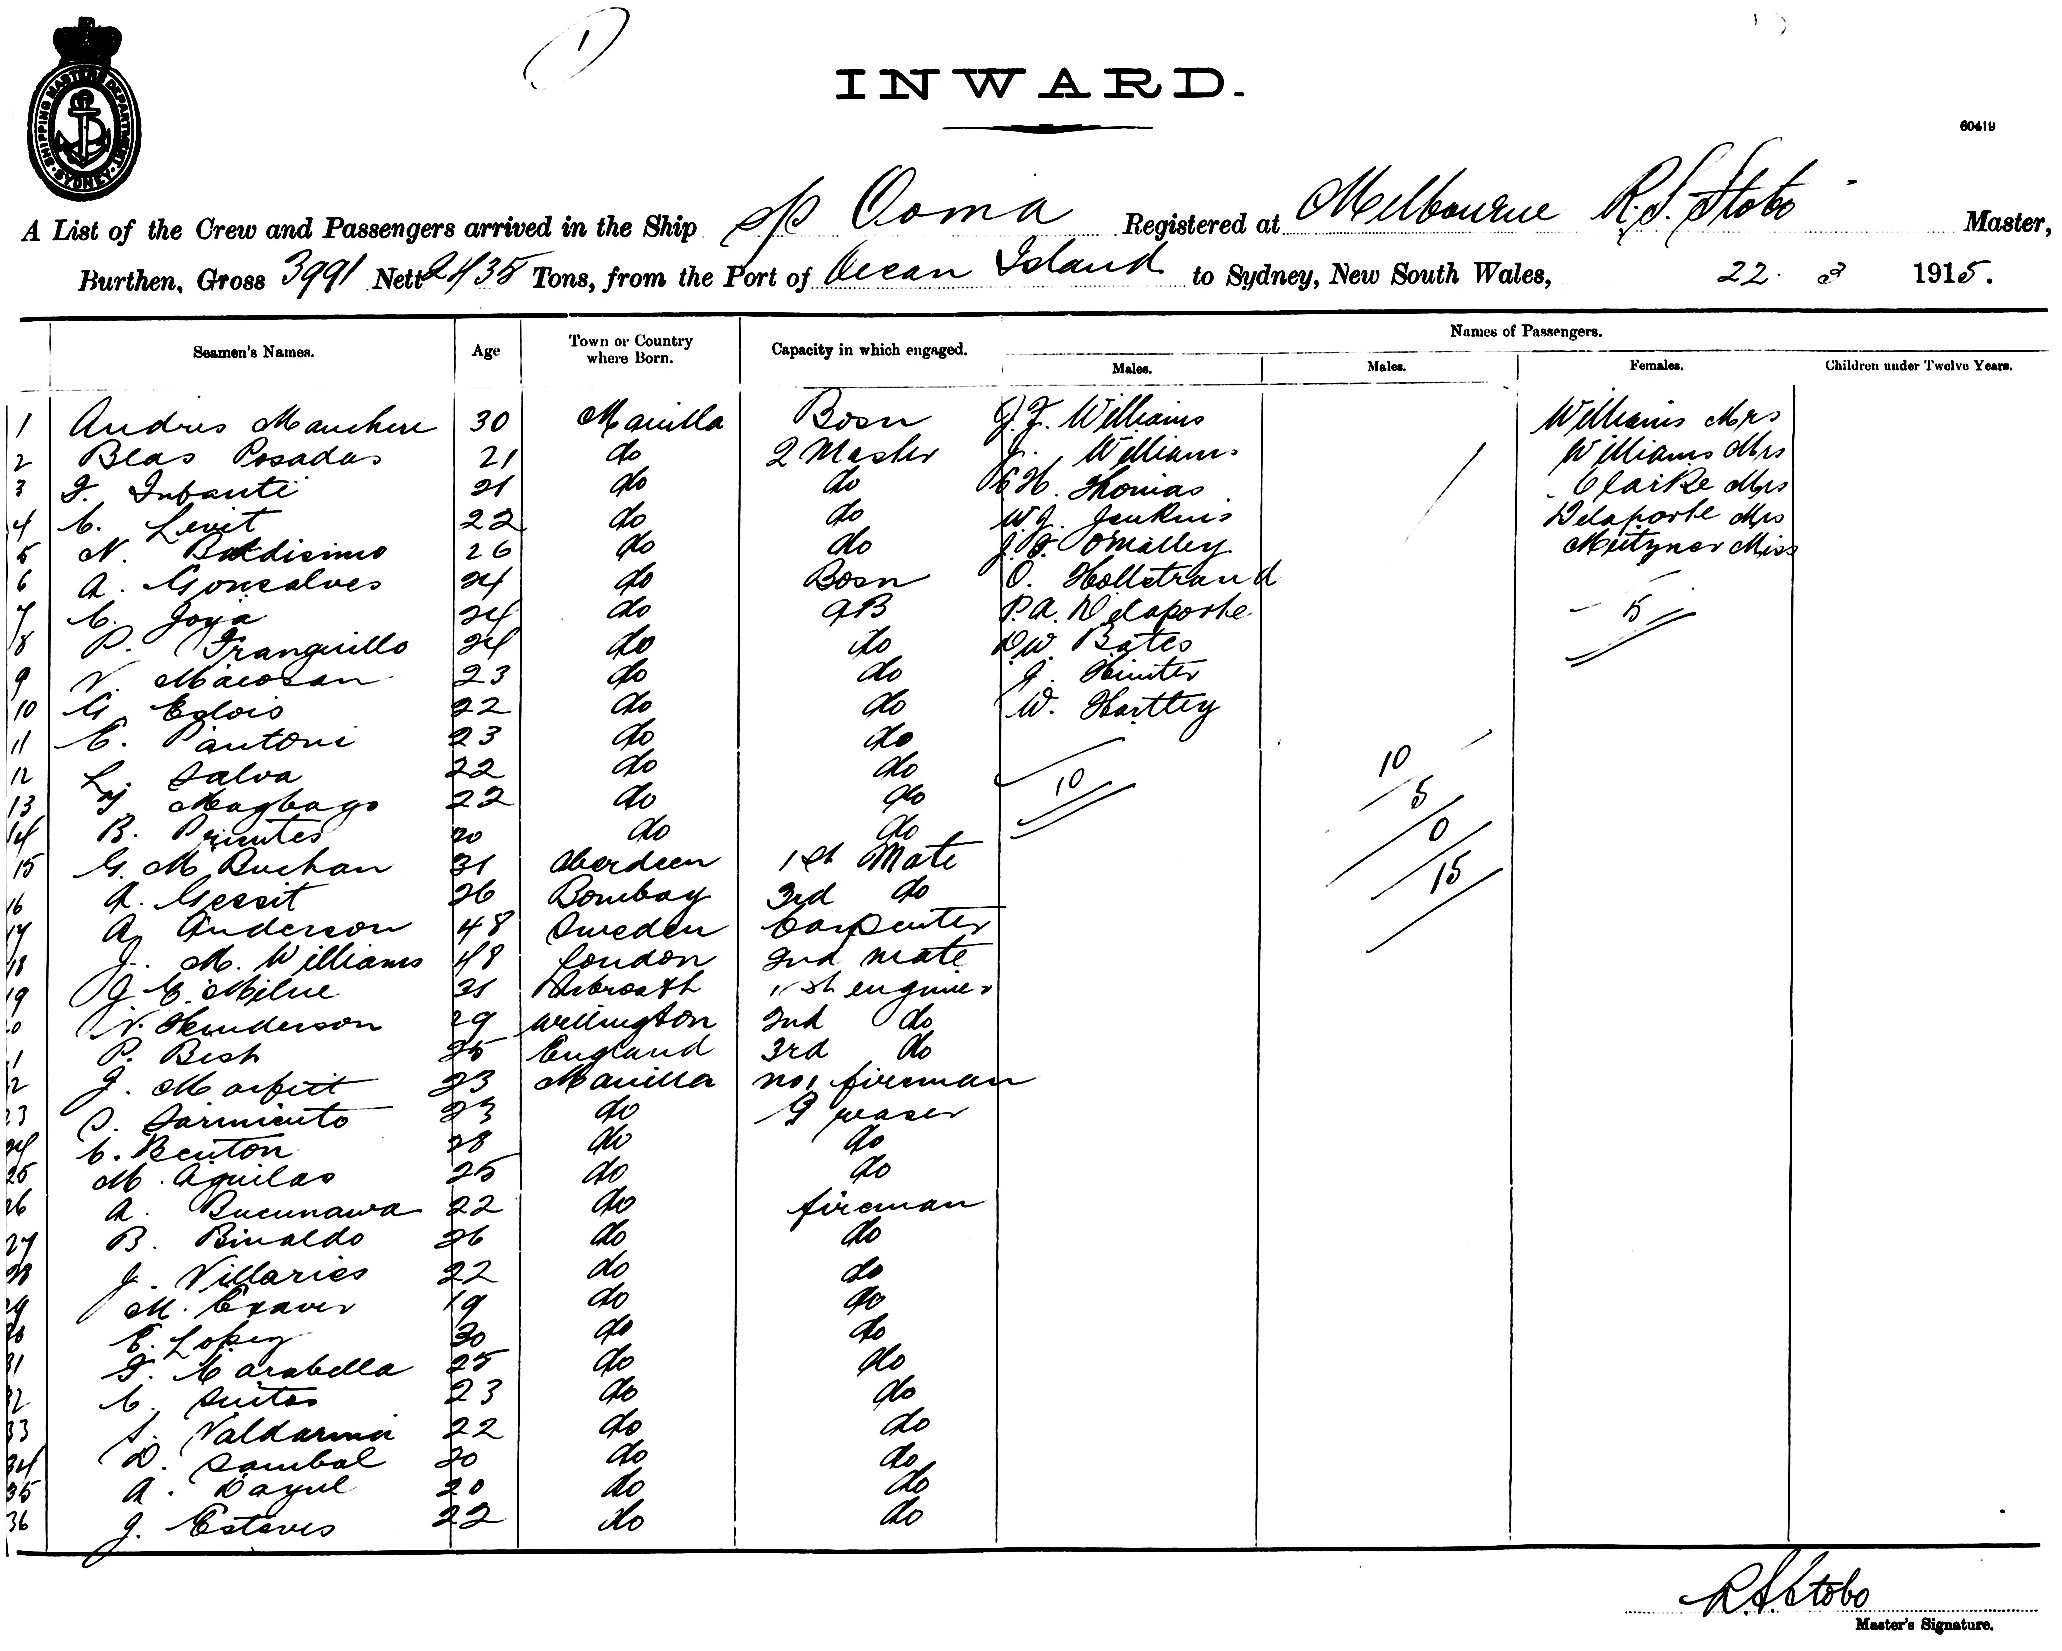 1
INWARD.
60419
SHIPPING MASTERS DEPARTMENT SYDNEY
A List of the Crew and Passengers arrived in the Ship Ooma Registered at Melbourne R.S. Stobo Master,
Burthen, Gross 3991 Nett 2435 Tons, from the Port of Ocean Island to Sydney, New South Wales, 22. 3 1915.
Names of Passengers.
Seamen's Names. Age Town or Country where Born. Capacity in which engaged. Males. Males. Females. Children under Twelve Years.
1 Andres Manchere 30 Manilla Bosn J. F. Williams Williams Mrs
2 Blas Posadas 21 do 2 Master J. Williams Williams Mrs
3 F. Infanti 21 do do H. Thomas Clarke Mrs
4 C. Levit 22 do do W. J. Jenkins Delaporte Mrs
5 N. 26 do do J. F. O'Malley Mitzner Miss
6 A. Gonsalves 24 do Bosn O. Hollstrand
7 C. Joya 24 do AB P. A. Delaporte 5
8 P. Tranquillo 24 do do D W. Bates
9 V. Maiosan 23 do do J. Hunter
10 G. Eglois 22 do do W. Hartley
11 E. Pantoni 23 do do
12 L. Salva 22 do do 10 10
13 Magbago 22 do do 5
14 B. Prientes 20 do do 0
15 G. M. Buchan 31 Aberdeen 1st Mate 15
16 A. Gessit 26 Bombay 3rd do
17 A. Anderson 48 Sweden Carpenter
18 J. M. Williams 48 London 2nd mate
19 J. E. Milne 31 Arbroath 1st engineer
20 N. Henderson 29 Wellington 2nd do
21 P. Best 25 England 3rd do
22 J. Morfett 23 Manilla no 1 fireman
23 S. Sarmiento 23 do Greaser
24 C. Benton 28 do do
25 M. Aguilas 25 do do
26 A. Bucunawa 22 do fireman
27 B. Binaldo 26 do do
28 J. Villaries 22 do do
29 M. Exaver 19 do do
30 E. Lopey 30 do do
31 F. Carabella 25 do do
32 C. Suitos 23 do do
33 S. Valdarmia 22 do do
34 D. Sambal 20 do do
35 A. Dayul 20 do do
36 J. Esteves 22 do do
R. S. Stobo
Master's Signature.